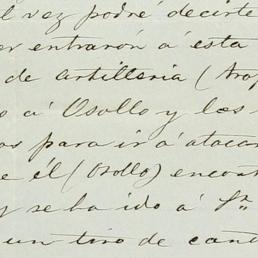 l vez podré decirte
er entraron á esta
de artilleria (trop
s á Osollo y los
os para ir á atacar
e él (Osollo) encont
y se ha ido á Sn
un tiro de cañ